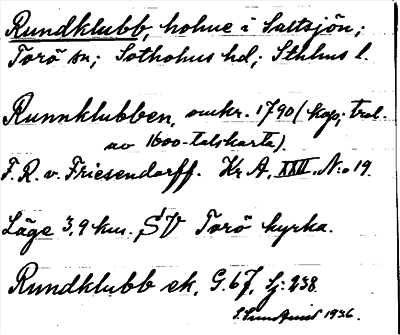 Rundklubb, holme i Saltsjön;
Torö sn; Sotholms hd; Sthlms l.
Runnklubben, omkr. 1790 (kop. trol.
av 1600-talskarta).
F. R. v. Friesendorff. Kr. A. XXII. N:o 19.
Läge 3,9 km. SV Torö kyrka.
Rundklubb ek. G. 67, Sj: 238.
1936.